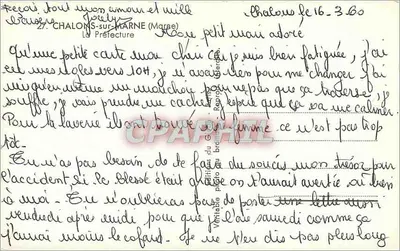 Reçois tout mon amour et mille
baisers Jocelyne
Chalons le 16-3-60
27. CHALONS-sur-MARNE (Marne)
La Préfecture
Mon petit mari adoré
Qu'une petite carte mon chéri car je suis bien fatiguée, j'ai
eu mes règles vers 10H, je n'avais rien pour me changer j'ai
mis un mouchoir pour
souffre, je vais prendre un cachet, j'espère que ça va me calmer.
Pour la laverie ils ont trouvé une femme ce n'est pas trop
tôt.
Tu n'as pas besoin de te faire du soucis mon trésor pour
l'accident, si le blessé était grave on t'aurait avertie
à moi - Tu n'oublieras pas de poster une lettre
vendredi après midi pour que je l'ai samedi comme ça
j'aurai moins le cafard. Je ne t'en dis pas plus long
CPARPHIL